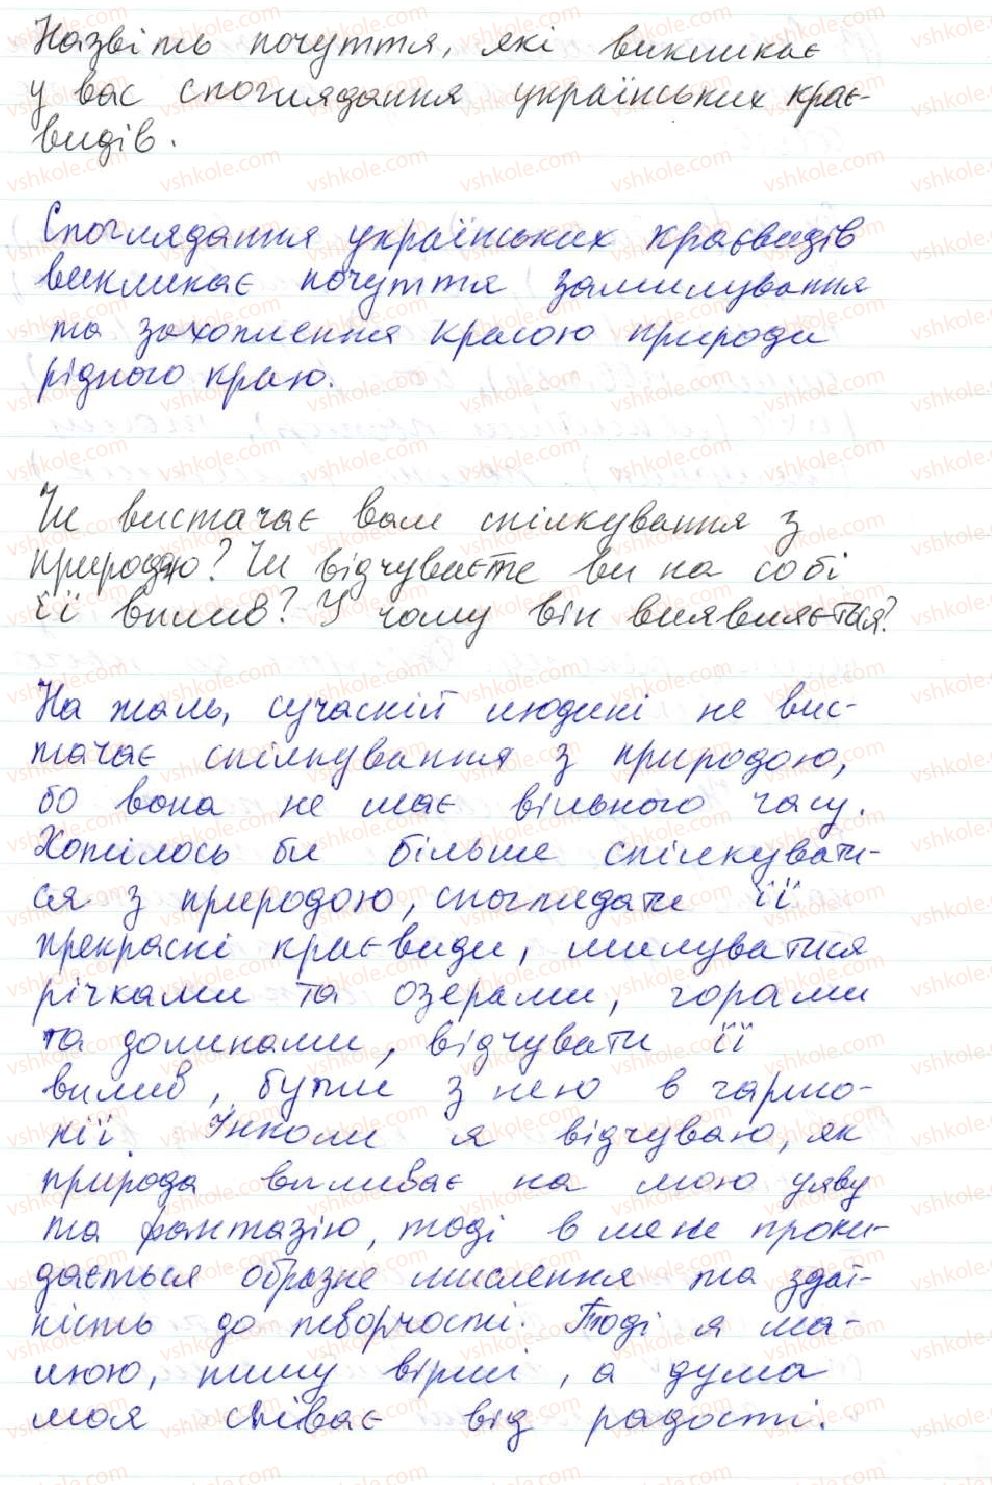 Назвіть почуття, які викликає
у вас споглядання українських крає-
видів.
Споглядання українських краєвидів
викликає почуття замилування
та захоплення красою природи
рідного краю.
Чи вистачає вам спілкування з
природою? Чи відчуваєте ви на собі
її вплив? У чому він виявляється?
На жаль, сучасній людині не вис-
тачає спілкування з природою,
бо вона не має вільного часу.
Хотілось би більше спілкувати-
ся з природою, споглядати її
прекрасні краєвиди, милуватися
річками та озерами, горами
та долинами, відчувати її
вплив, бути з нею в гармо-
нії. Інколи я відчуваю, як
природа впливає на мою уяву
та фантазію, тоді в мене проки-
дається образне мислення та здат-
ність до творчості. Тоді я ма-
люю, пишу вірші, а душа
моя співає від радості.